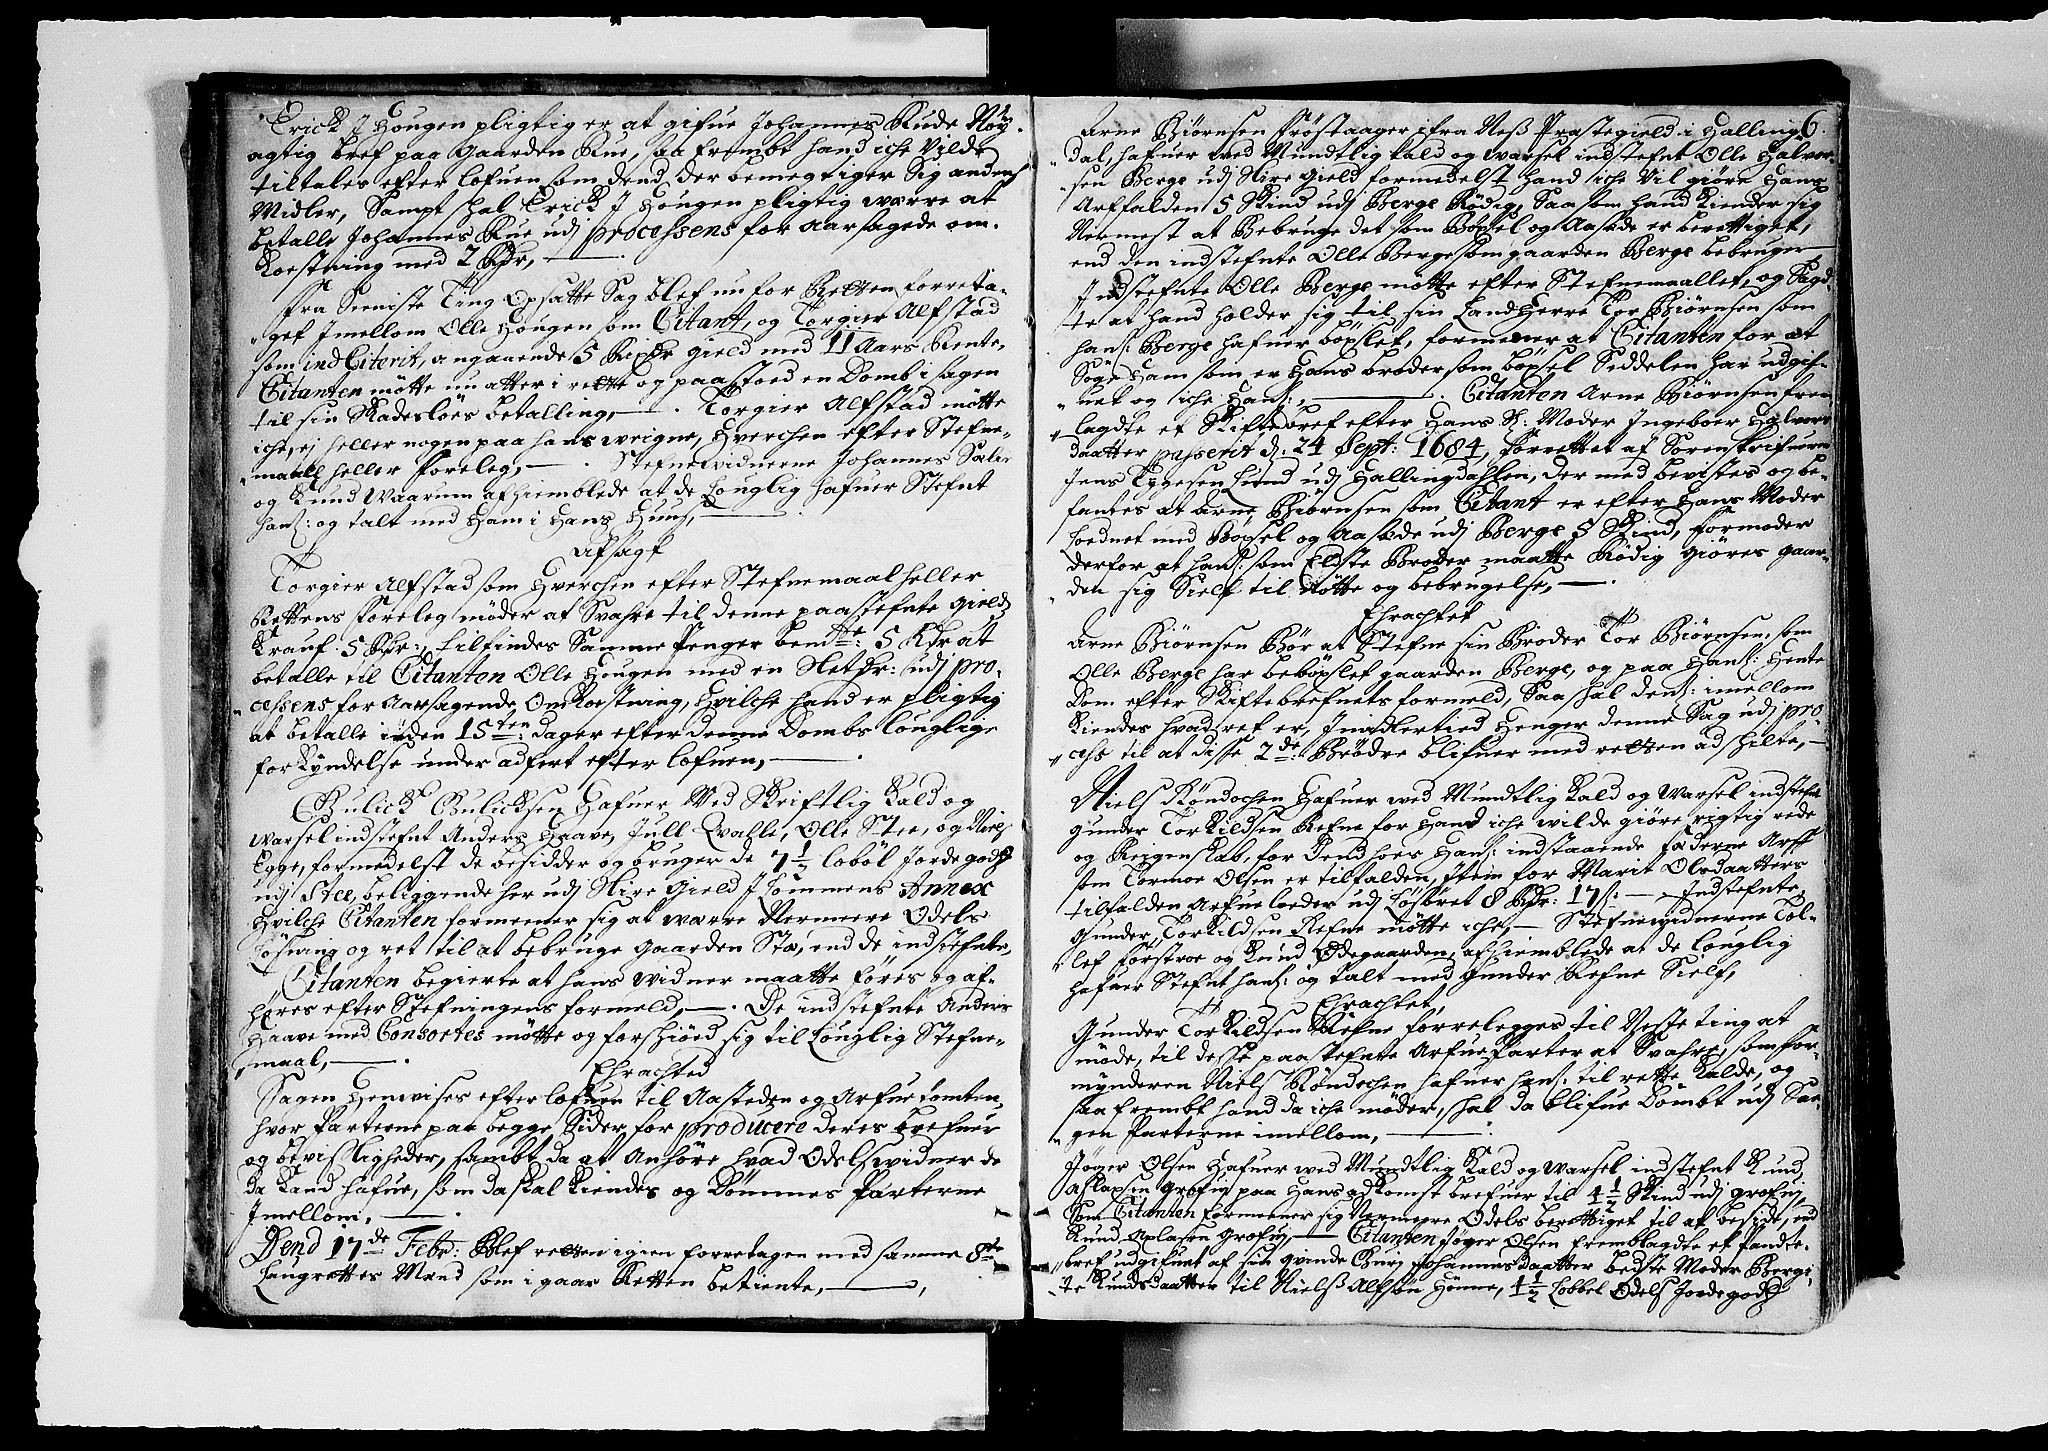 Erick J Hougen pligtig er at gifue Johannes Rude Nøy-
agtig bref paa Gaarden Rue, saa frembt hand iche vilde
tiltales efter lofuen som dend der bemegtiger Sig andens
Midler, Sampt schal Erick J Hougen pligtig werre at
betalle Johannes Rue udj processens for aarsagede om-
Koestning med 2 Rdr,
Fra Seeniste Ting Opsatte Sag blef nu for Retten forreta-
get Jmellom Olle Hougen som Citant, og Torgier Alfstad
som ind Citerit, angaaende 5 Rixdr gield med 11 Aars Rente,
Citanten møtte nu atter i rette og paastoed en Domb i sagen
til sin Skadesløes betalling, Torgier Alfstad møtte
iche, ej heller nogen paa hans weigne, Hverchen efter Stefne-
maall heller foreleg, Stefnewidnerne Johannes Sæter
og Knud Waarum afhiemblede at de louglig hafuer Stefnt
hans: og talt med Ham i Hans Huus,
Afsagt
Torgier Alfstad som Hverchen efter Stefnemaal heller
Rettens foreleg møder at Svahre til denne paastefnte gields
Krauf 5 Rdr:, tilfindes Samme Penger bemte: 5 Rdr at
betalle til Citanten Olle Hougen med en Slet dr: udj pro-
cessens for Aarsagende Omkoestning, Hvilche hand er pligtig
at betalle inden 15ten: dager efter denne Dombs louglige
forkyndelse under adfert efter lofuen,
Gulick Gulicksen Hafuer Ved Skriftlig Kald og
Warsel indstefnt Anders Haave, Jull Qvalle, Olle Stee, og Niels
Egge, formedelst de besidder og bruger de 7½ lobøl Jordegods
udj Stee, beliggende her udj Slire gield J Lommens Annex
Hvilche Citanten formeener sig at warre Nermeere Odels
Løsning og ret til at bebruge gaarden Stæ, end de indstefnte,
Citanten begierte at hans widner maatte føres og af-
høres efter Stefningens formeld, De indstefnte Anders
Haave med Consortes møtte og forschiød sig til Louglig Stefne-
maal,
Ehrachted
Sagen Henvises efter lofuen til Aasteden og Arfuetomten,
hvor Parterne paa begge Sider for producere deres brefuer
og bevisligheder, sambt da at Anhøre hvad Odelswidner de
da Kand hafue, som da skal Kiendes og Dømmes Parterne
Jmellom,
Dend 17de Febr: Blef retten igien forretagen med samme 8te
Laugrettes Mænd som i gaar Retten betiente,
6.
Arne Biørnsen frøstaager ifra Neß Præstegield i Halling-
dal, hafuer wed Mundtlig Kald og warsel indstefnt Olle Halvor-
sen Berge udj Slire gield formedelst hand iche vil giøre Hans
Arffalden 5 Skind udj Berge Rødig, Saasom hand Kiender sig
Nermest at Bebruge det som Bøxsel og Aasæde er berettiget,
end den indstefnte Olle Berge som gaarden Berge bebruger
Jndstefnte Olle Berge møtte efter Stefnemaallet, og Sagd-
te at hand holder sig til sin Landherre Tor Biørnsen som
hans: Berge hafuer bøxslet, formener at Citanten for at
Søge Ham som er Hans broder som bøxsel Seddelen har udgif-
uet og iche Hans:, Citanten Arne Biørnsen frem
lagde et Skiftebref efter Hans S: Moder Ingeboer Halvors
daatter passerit d: 24 Sept: 1684, forrettet af Sorenskrifueren
Jens Tygesen Lund udj Hallingdahlen, der med bevistes og be-
fantes at Arne Biørnsen som Citant er efter Hans Moder
Loednet med Bøxsel og Aasæde udj Berge 5 Skind, formoder
derfor at hans: som Eldste Broder maatte Rødig Giøres gaar-
den sig Sielf til Nøtte og bebrugelse,
Ehrachtet
Arne Biørnsen Bør at Stefne sin Broder Tor Biørnsen, som
Olle Berge har bebøxslet gaarden Berge, og paa Hans: Hente
Dom efter Skiftebrefuets formeld, Saa schal dens: imellom
Kiendes hvad ret er, Jmidlertied Henger denne Sag udj pro-
cess til at disse 2de: Brødre blifuer med retten ad schilte,
Niels Røndochen Hafuer wed Mundtlig Kald og Warsel indstefnt
Gunder Torkildsen Refne for Hand iche wilde giøre rigtig rede
og Reigenskab, for Dend hoes Hans: instaaende fæderne Arff
som Tormoe Olsen er tilfalden, Item for Marit Olsdaatters
tilfalden Arfue loeder udj Løsøret 8 Rdr: 17 s: Indstefnte
Gunder Torkildsen Refne møtte iche, Stefnewidnerne Tol-
lef førstroe og Knud Ødegaarden, afhiemblede at de louglig
hafuer Stefnt hans: og talt med Gunder Refne Sielf,
Ehrachtet,
Gunder Torkildsen Refne forrelegges til Neste ting at
møde, til desse paastefnte Arfue Parter at Svahre, som for-
mynderen Niels Røndochen hafuer hans: til rette Kalde, og
saa frembt hand da iche møder, skal da blifue Dombt udj Sa-
gen Parterne imellom,
Jøger Olsen Hafuer wed Mundtlig Kald og warsel indstefnt Knud
Aslaxsen Grøfuj paa Hans adkomst brefuer til 4½ Skind udj Grøfuj,
Som Citanten formeener sig Nermere Odels berettiget til at beside, end
Knud Aslasen Grøfuj, Citanten Jøger Olsen fremblagdte et Pandte-
bref udgifuet af sin Qvinde Guri Johannesdaatter bedste Moder Bergi-
te Knudsdaatter til Nielß Alfsøn Hønne, 4½ Lobbel Odels Jordegods